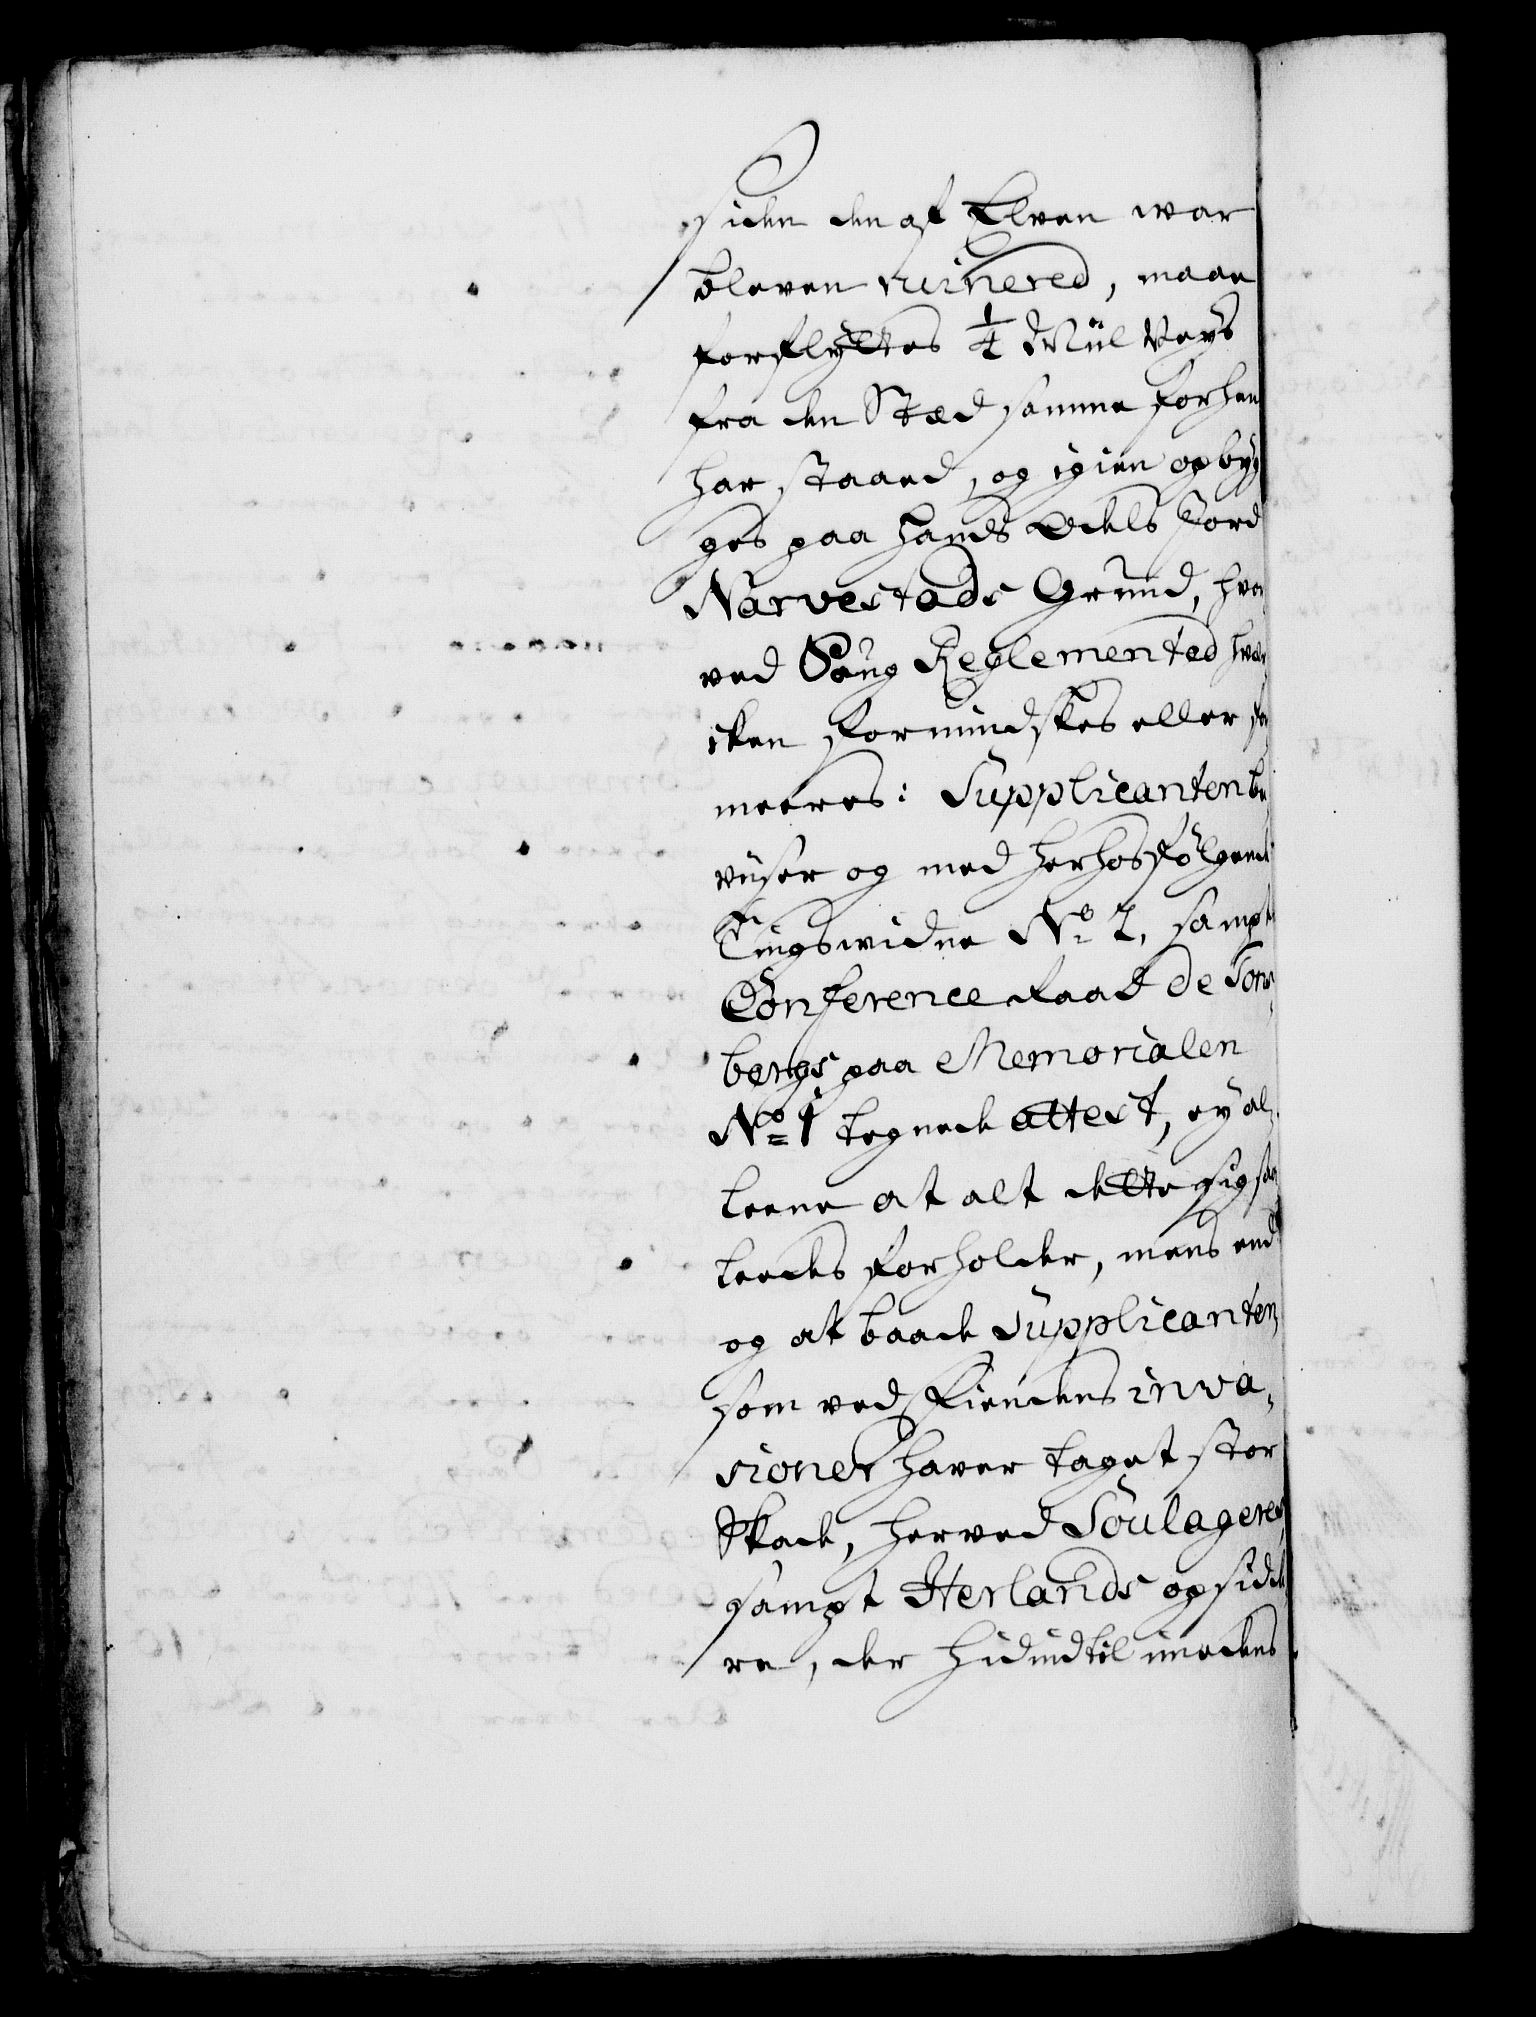 siden den af Elven war
bleven ruinered, maae
forflyttes 1/4 Miil Veys
fra den Stæd samme forhen
har staaed, og igien opbyg
ges paa hands Odels Jord
Narvestads Grund, hvor
ved Saug Reglemented hver
cken formindskes eller for
meeres: Supplicanten be
viiser og med herhosfølgende
Tingswidne No 2, sampt
Conference Raad de Tons
bergs paa Memorialen
No 1 tegnede attest, ey al
leene at alt dette sig saa
leedes forholder, mens end
og at baade Supplicanten
som ved Fiendens inva
sioner haver taget stor
Skade, herved Soulageres,
sampt Herlands opsidde
re, der hidindtil imedens